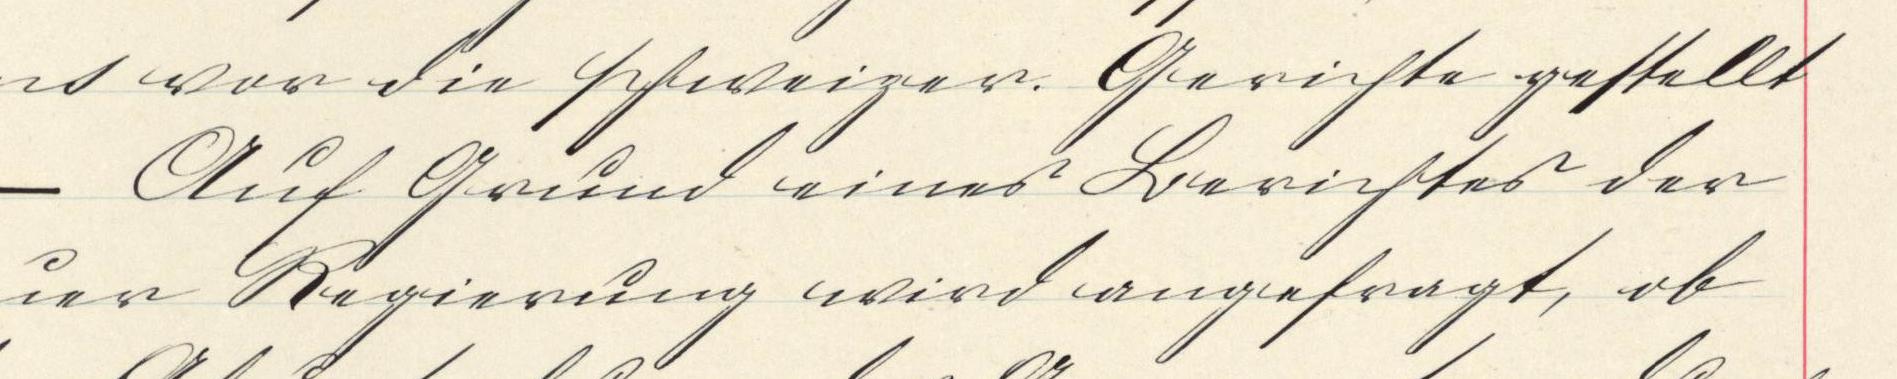 vor die schweizer. Gerichte gestellt
— Auf Grund eines Berichtes der
Regierung wird angefragt, ob